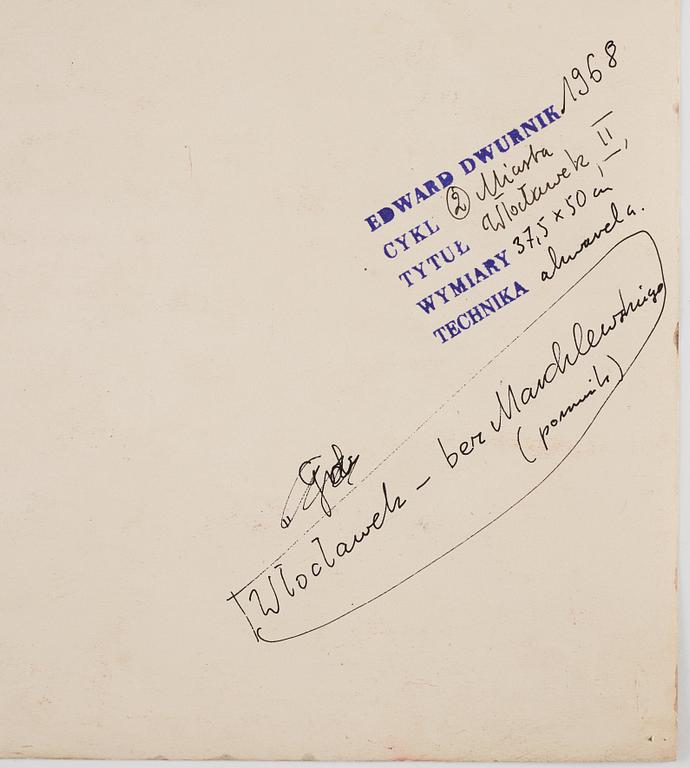 EDWARD DWURNIK 1968
CYKL ② Miasta
TYTUŁ Włocławek, II,
WYMIARY 37,5 x 50 cm
TECHNIKA akwarela.
Włocławek – bez Marchlewskiego
(pomnik)